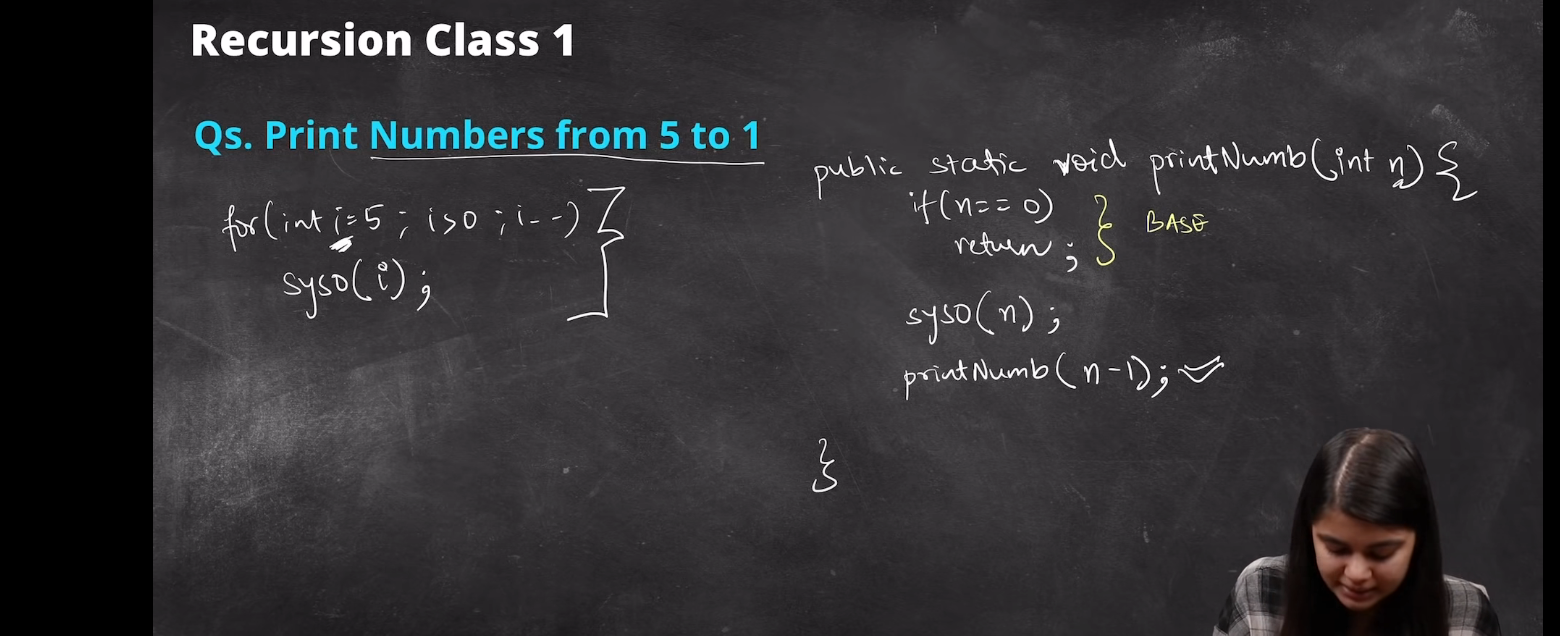 Recursion Class 1
Qs. Print Numbers from 5 to 1
for(int i=5 ; i>0 ; i--)
syso(i);
public static void printNumb(int n) {
if(n==0)
return ;
} BASE
syso(n) ;
printNumb(n-1);
}